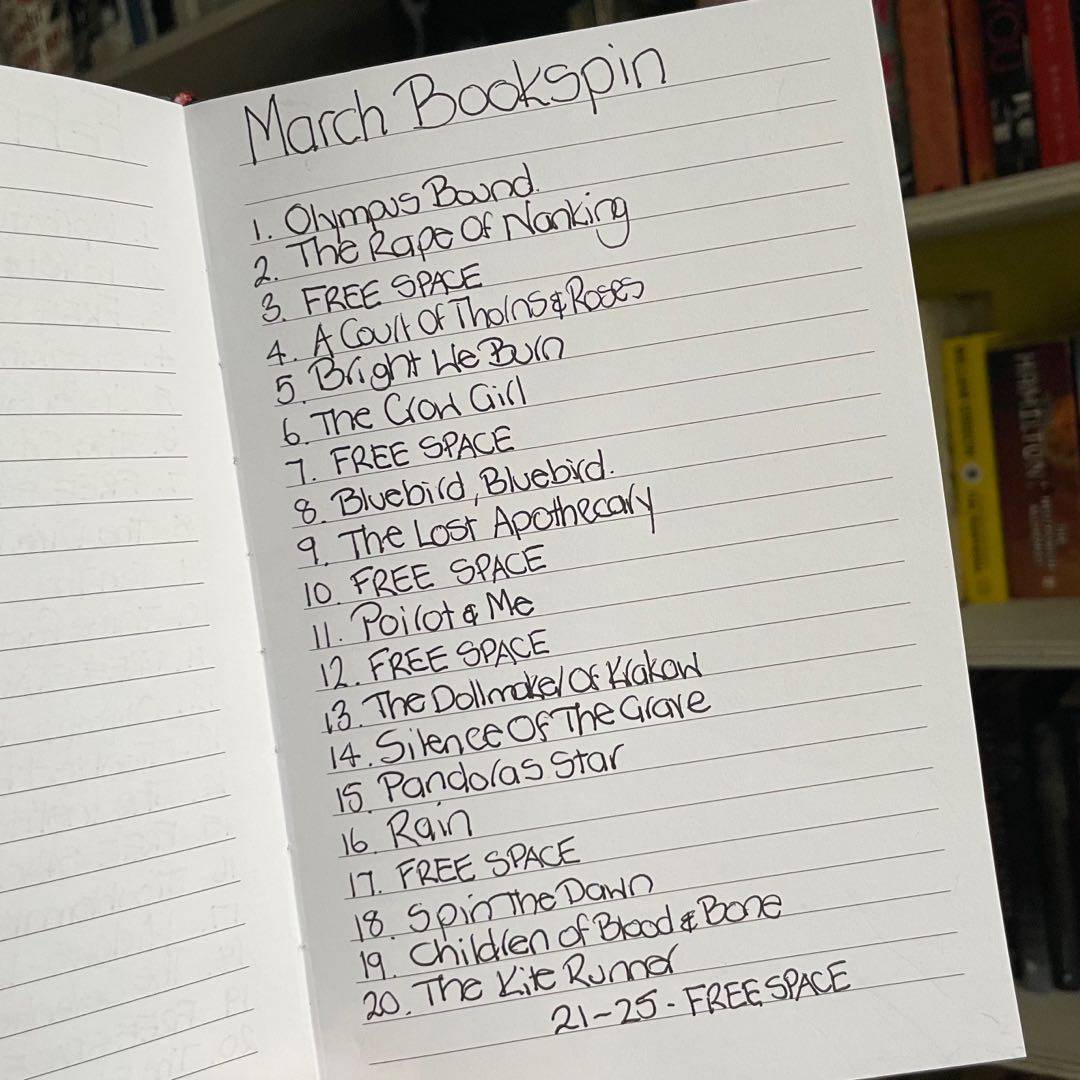 March Bookspin
1. Olympus Bound.
2. The Rape Of Nanking
3. FREE SPACE
4. A Court Of Thorns & Roses
5. Bright We Burn
6. The Crow Girl
7. FREE SPACE
8. Bluebird, Bluebird.
9. The Lost Apothecary
10. FREE SPACE
11. Poirot & Me
12. FREE SPACE
13. The Dollmaker Of Krakow
14. Silence Of The Grave
15. Pandoras Star
16. Rain
17. FREE SPACE
18. Spin The Dawn
19. Children of Blood & Bone
20. The Kite Runner
21-25 - FREE SPACE
HAMILTON